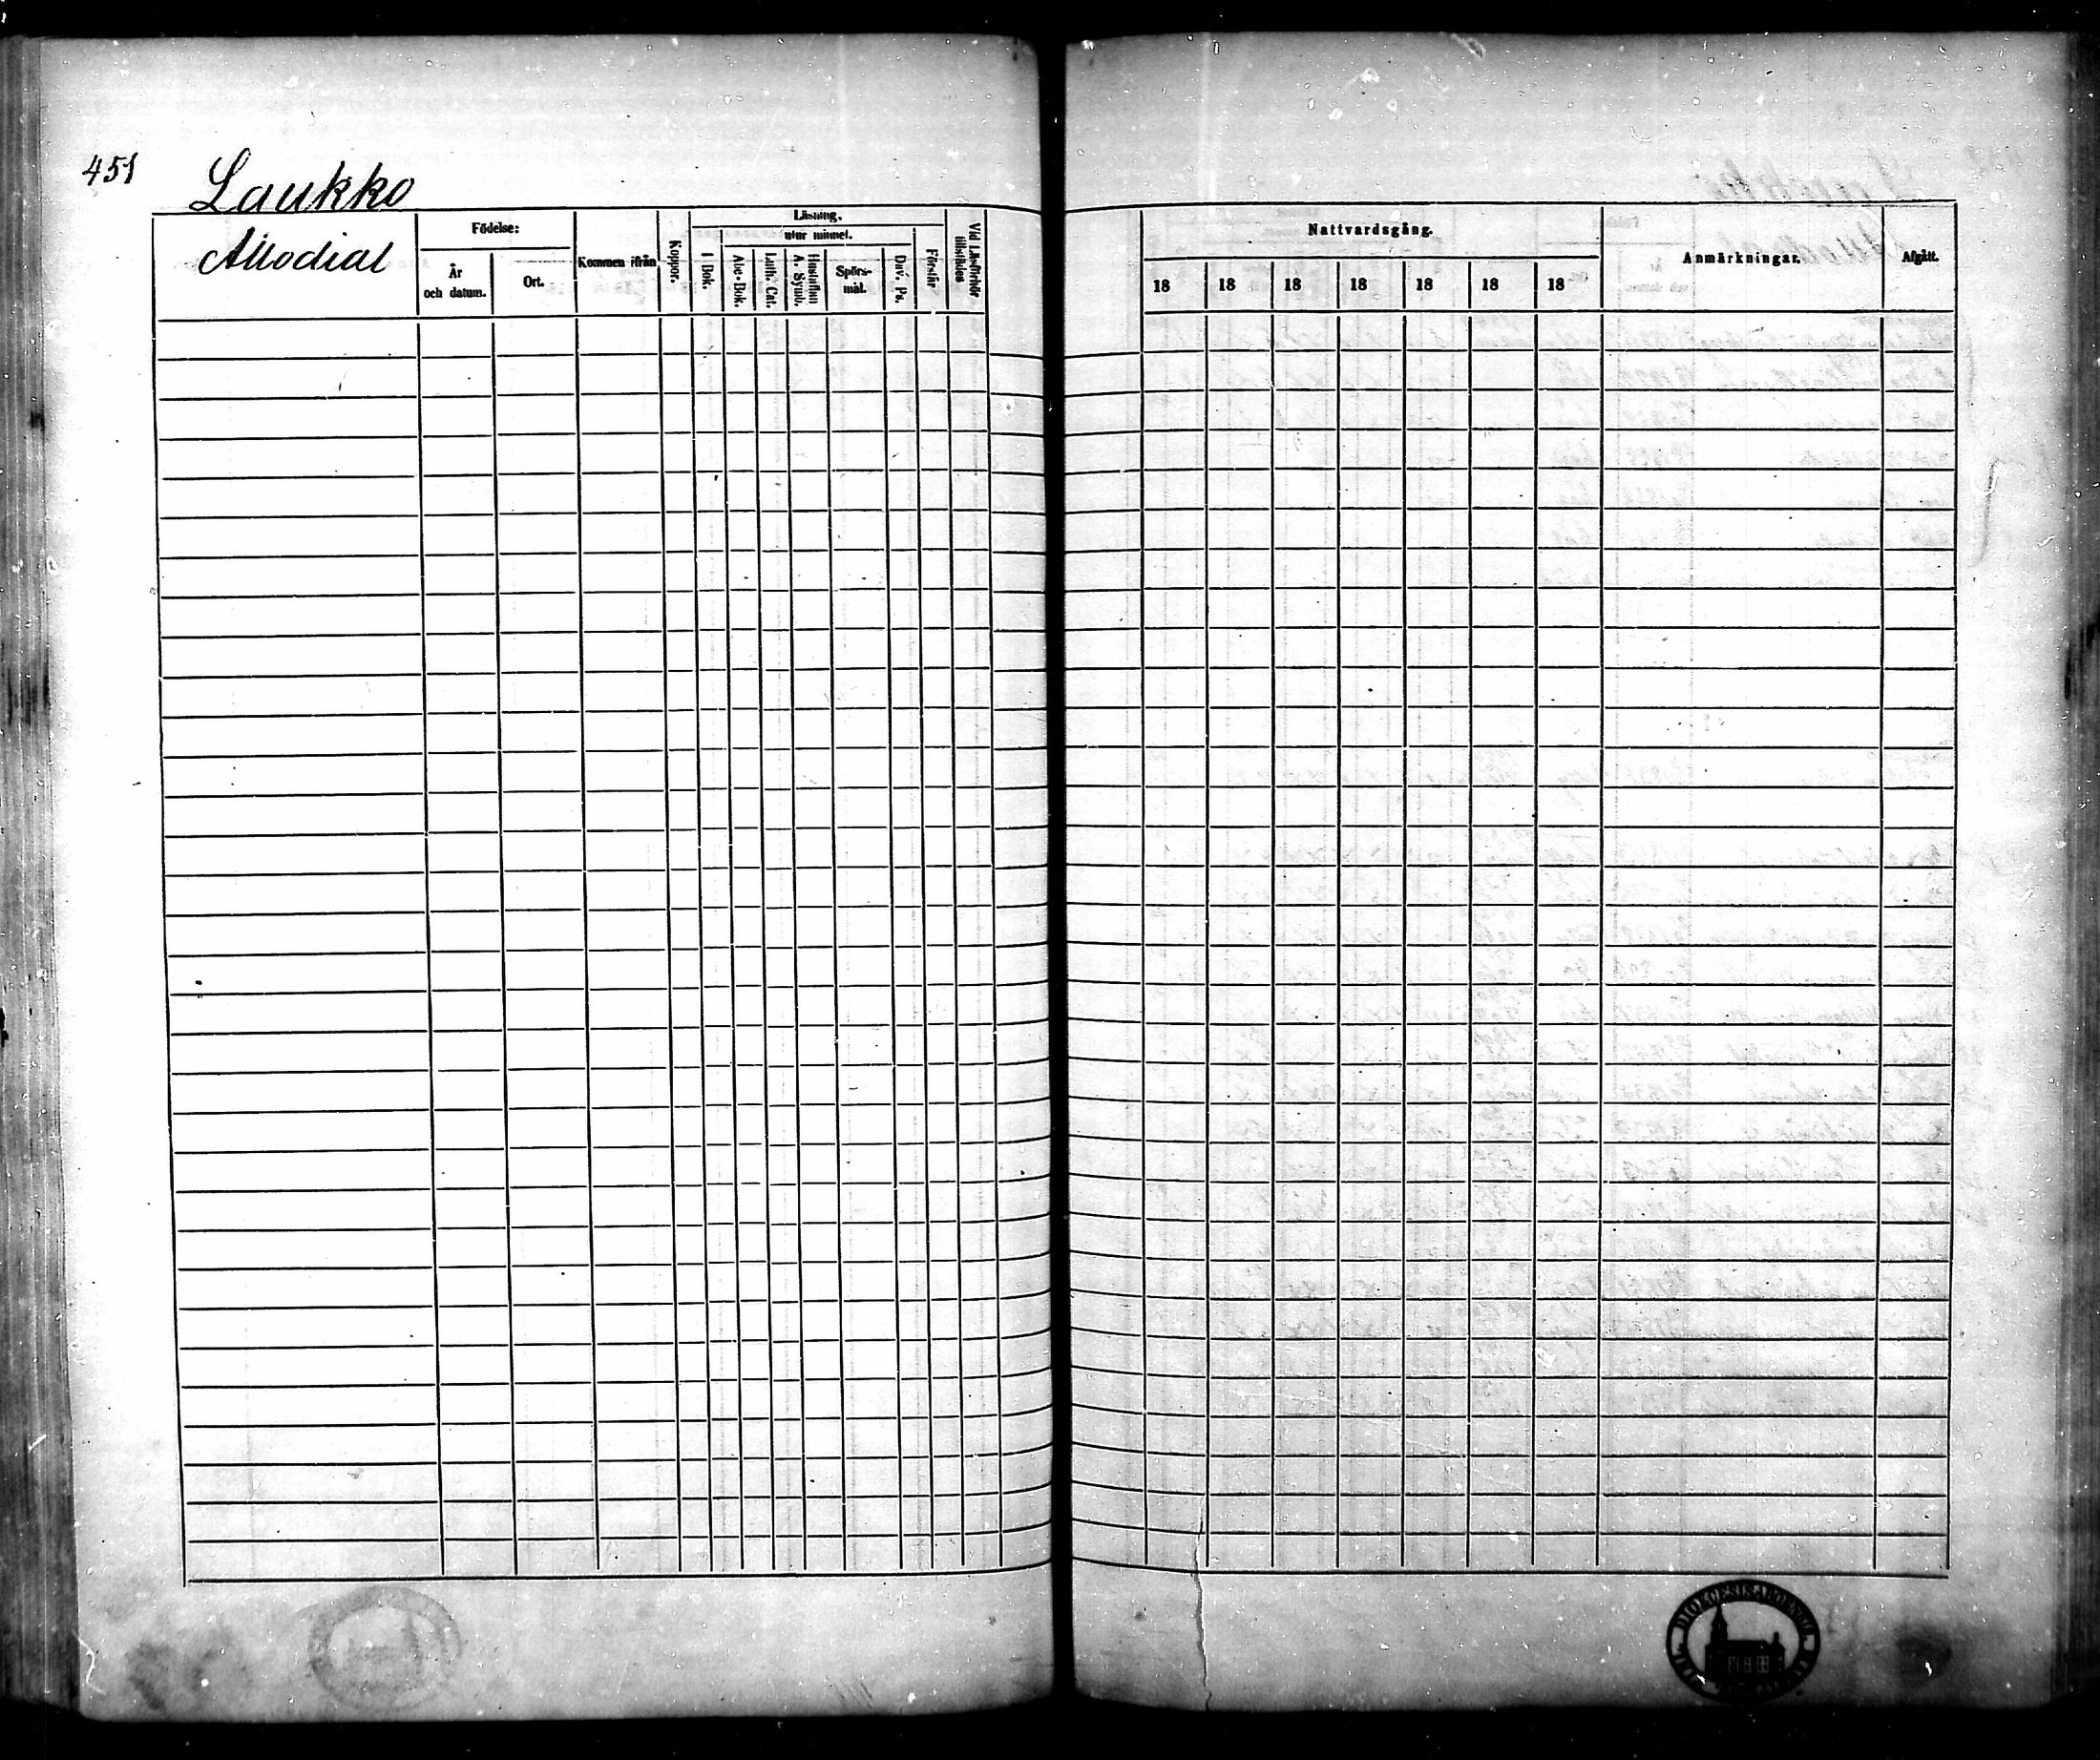 451
Laukko
Allodial
Födelse:
År
och datum.
Ort.
Kommen ifrån
Koppor.
Läsning.
utur minnet.
I Bok.
Abc-Bok.
Luth. Cat.
Hustaflan
A. Symb.
Spörs-
mål.
Dav. Ps.
Förstår
Vid Läsförhör
tillstädes
Nattvardsgång.
18 18 18 18 18 18 18
Anmärkningar.
Afgått.